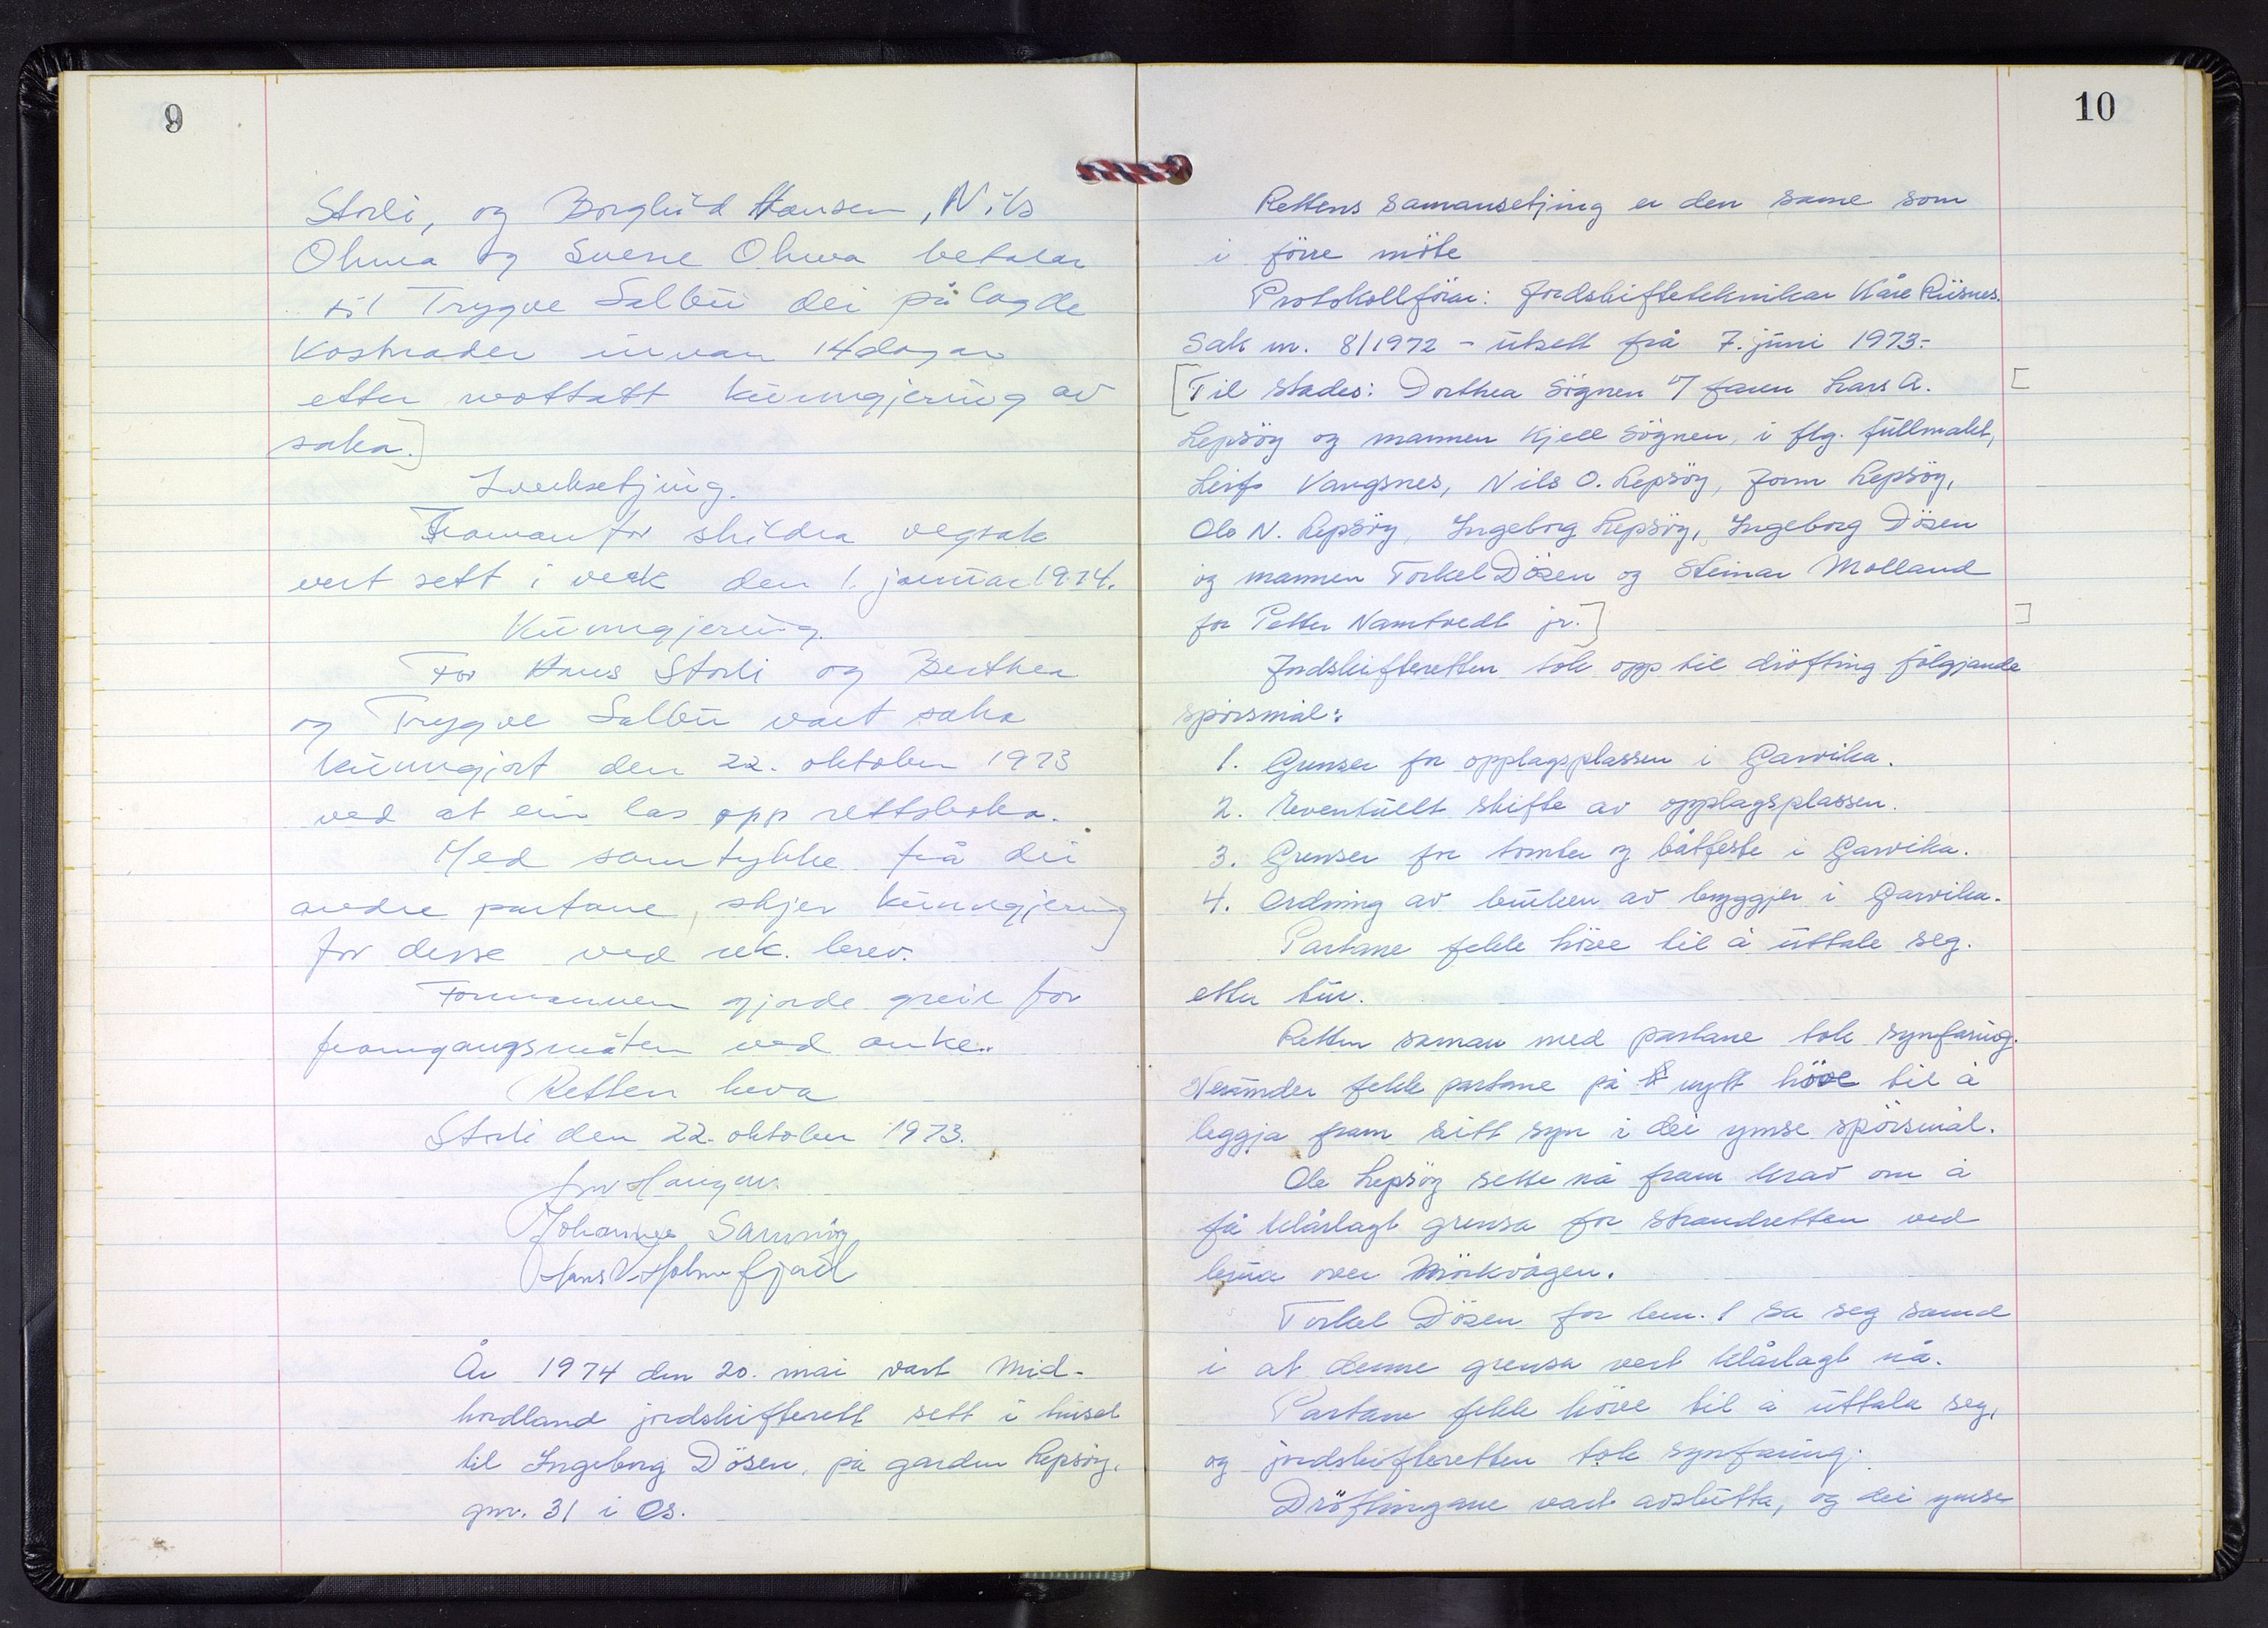 9
Storli, og Borghild Hansen, Nils
Olsen og Sverre Olsen betalar
til Trygve Salbu dei pålagde
kostnader innan 14 dagar
etter mottatt kunngjering av
saka.]
Iverksetjing.
Framanfor skildra vegsak
vert sett i verk den 1. januar 1974.
Kunngjering.
For Hans Storli og Berthea
og Trygve Salbu vart saka
kunngjort den 22. oktober 1973
ved at ein las opp rettsboka.
Med samtykke frå dei
andre partane, skjer kunngjering
for desse ved rek. brev.]
Formannen gjorde greie for
framgangsmåten ved anke.
Retten heva
Storli den 22. oktober 1973.
Johannes Samnöy
Hans V. Holmefjord
År 1974 den 20. mai vart Mid-
hordland jordskifterett sett i huset
til Ingeborg Dösen, på garden Lepsöy,
gnr. 31 i Os.
10
Rettens samansetjing er den same som
i förre möte
Protokollförar: Jordskifteteknikar Kåre Riisnes.
Sak nr. 8/1972 - utsett frå 7. juni 1973.
[Til stades: Dorthea Sögnen v/ faren Lars A. [
Lepsöy og mannen Kjell Sögnen, i flg. fullmakt,
Leif Vangsnes, Nils O. Lepsöy, Jorm Lepsöy,
Ole N. Lepsöy, Ingeborg Lepsöy, Ingeborg Dösen
og mannen Torkel Dösen og Steinar Molland
for Petter Namtvedt jr.] ]
Jordskifteretten tok opp til dröfting fölgjande
spörsmål:
1. Grenser for opplagsplassen i Garvika.
2. Eventuelt skifte av opplagsplassen.
3. Grenser for tomter og båtfeste i Garvika.
4. Ordning av bruken av bryggjer i Garvika.
Partane fekk höve til å uttale seg.
etter tur.
Retten saman med partane tok synfaring.
Herunder fekk partane på nytt höve til å
leggja fram sitt syn i dei ymse spörsmål.
Ole Lepsöy sette nå fram krav om å
få klårlagt grensa for strandretten ved
brua over Mörkvågen.
Torkel Dösen for bnr. 1 sa seg samd
i at denne grensa vert klårlagt nå.
Partane fekk höve til å uttala seg,
og jordskifteretten tok synfaring.
Dröftingane vart avslutta, og dei ymse